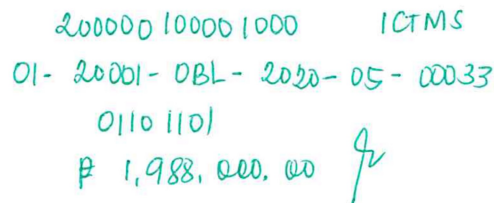 200000100001000 ICTMS
01-20001-OBL-2020-05-00033
01101101
₱ 1,988,000.00